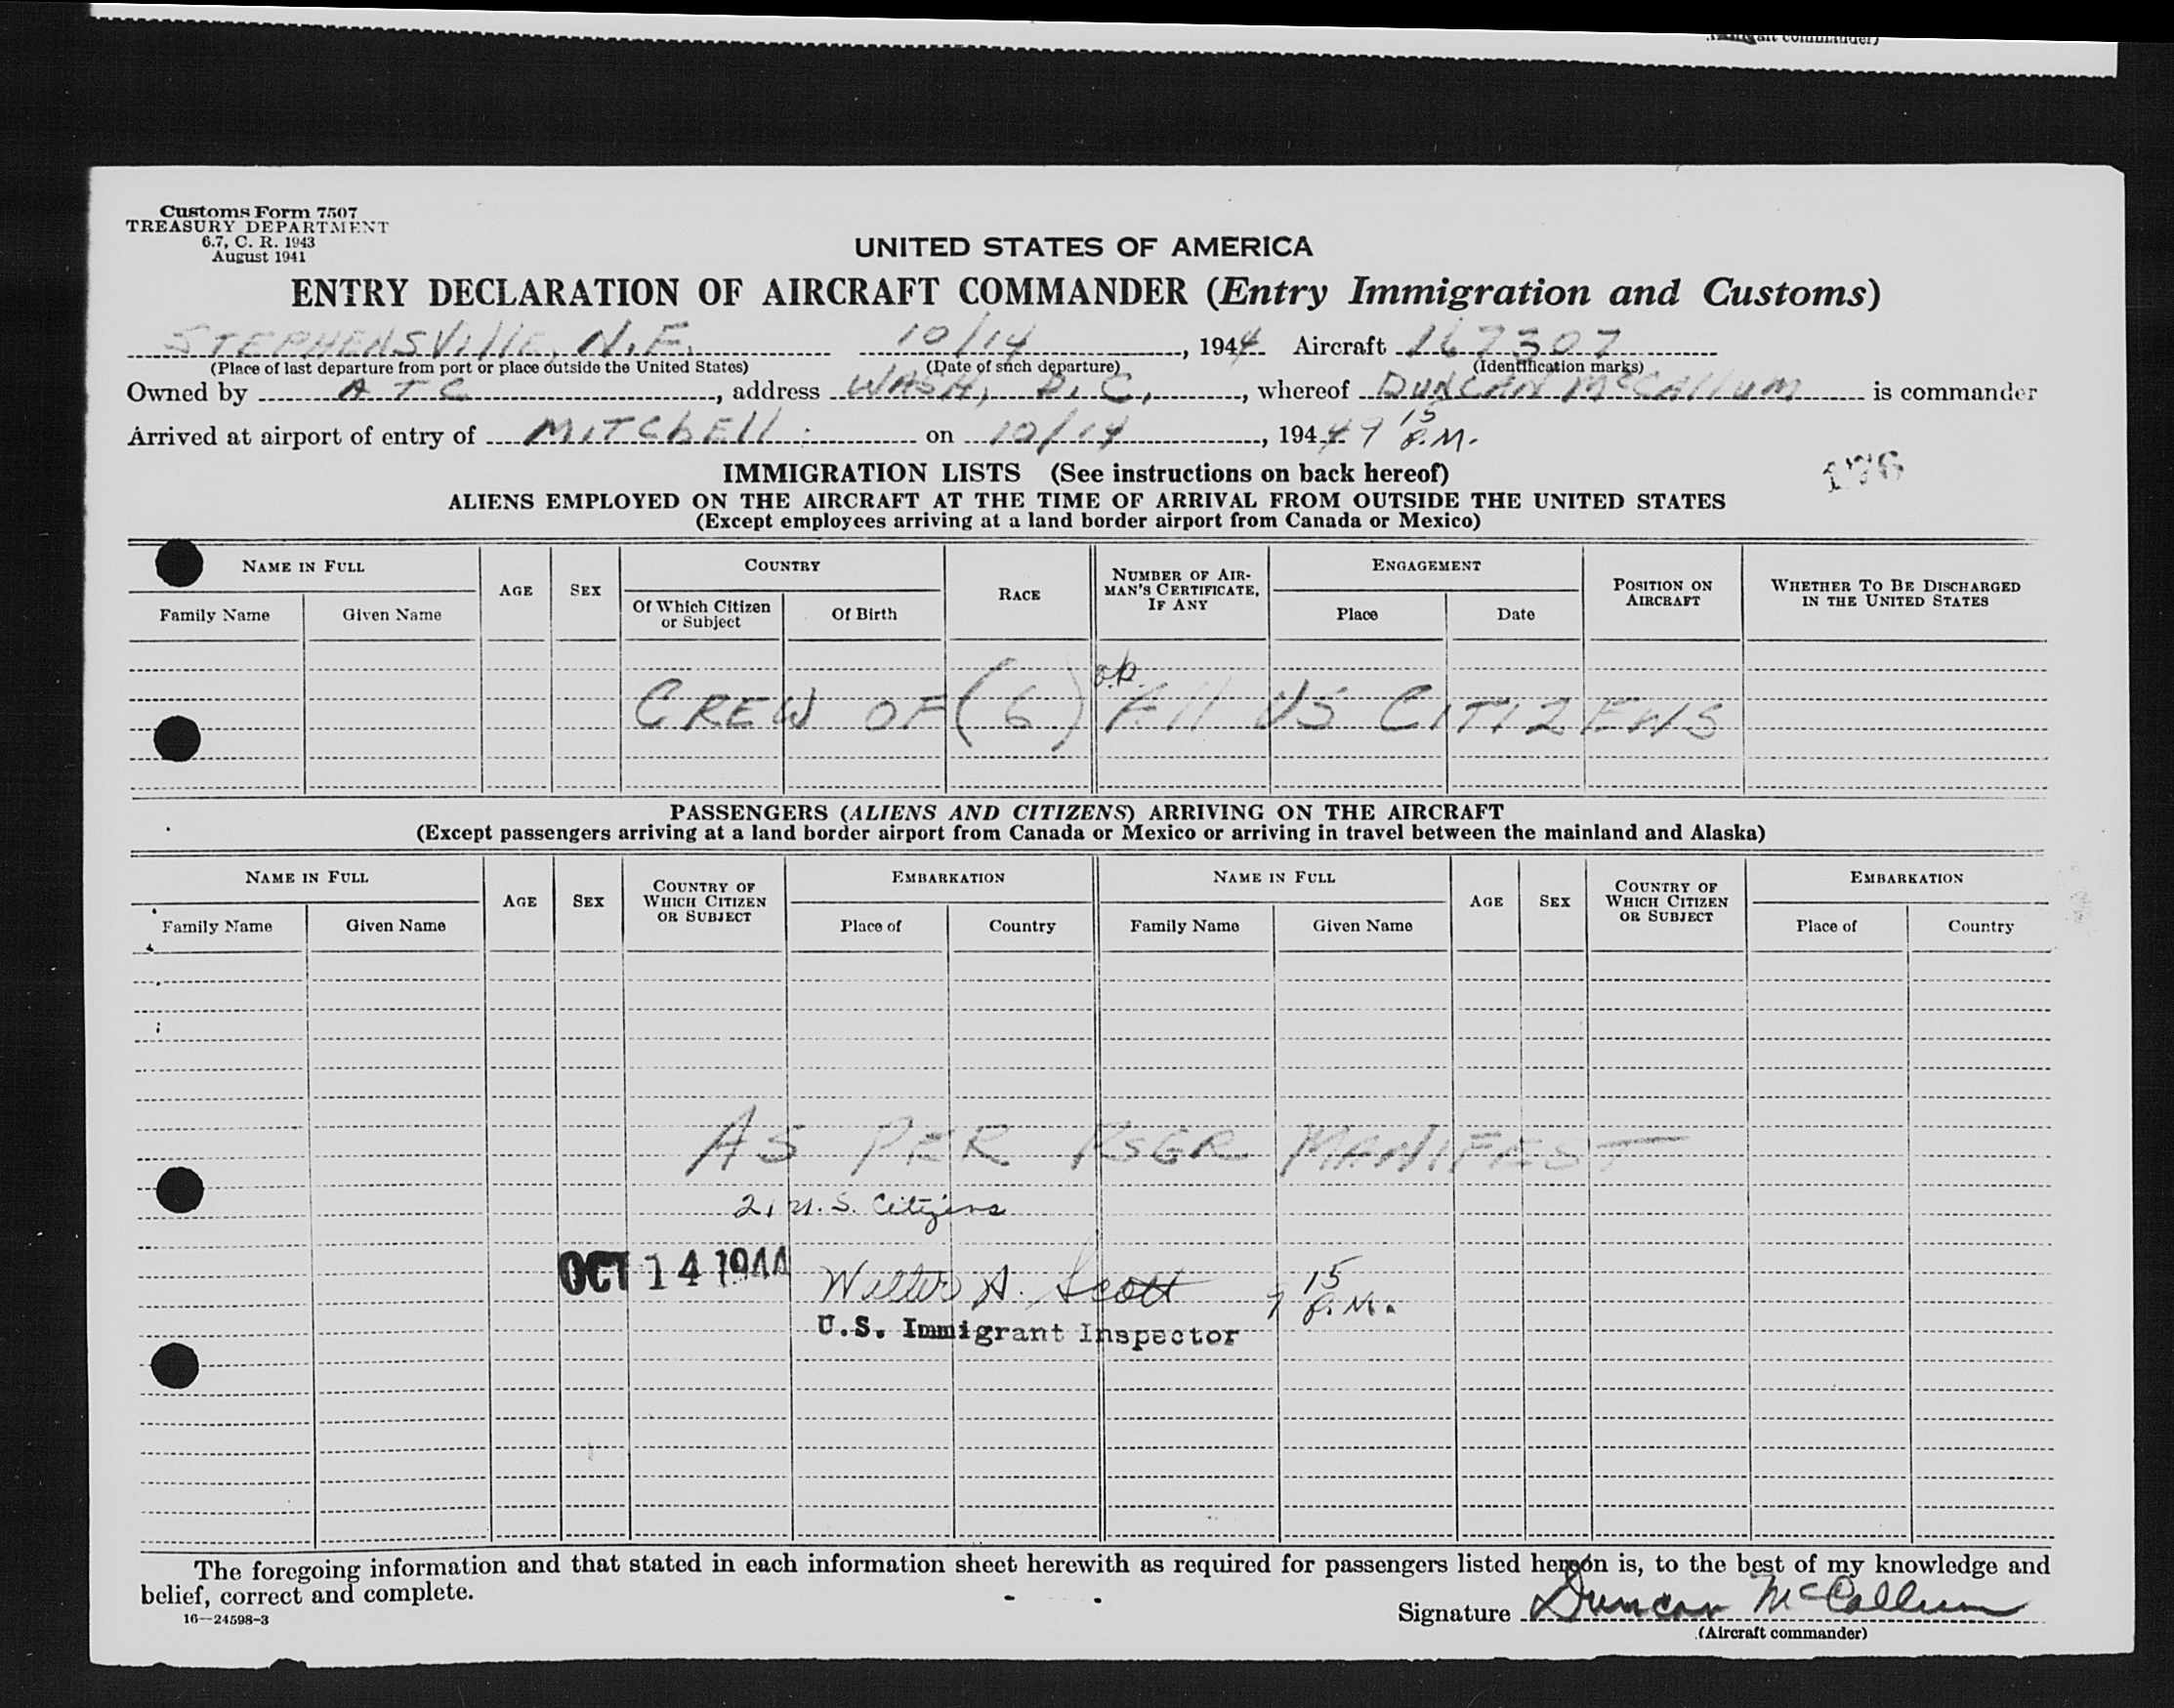 (Aircraft commander)
Customs Form 7507
TREASURY DEPARTMENT
6.7, C. R. 1943
August 1941
UNITED STATES OF AMERICA
ENTRY DECLARATION OF AIRCRAFT COMMANDER (Entry Immigration and Customs)
STEPHENSVIllE, N.F. 10/14, 1944 Aircraft 167307
(Place of last departure from port or place outside the United States) (Date of such departure) (Identification marks)
Owned by ATC, address WASH, D.C., whereof DUNCAN McCAllUM is commander
Arrived at airport of entry of MITCHEll on 10/14, 1944 7 15 P.M.
176
IMMIGRATION LISTS (See instructions on back hereof)
ALIENS EMPLOYED ON THE AIRCRAFT AT THE TIME OF ARRIVAL FROM OUTSIDE THE UNITED STATES
(Except employees arriving at a land border airport from Canada or Mexico)
NAME IN FULL AGE SEX COUNTRY RACE NUMBER OF AIR-MAN'S CERTIFICATE, IF ANY ENGAGEMENT POSITION ON AIRCRAFT WHETHER TO BE DISCHARGED IN THE UNITED STATES
Family Name Given Name Of Which Citizen or Subject Of Birth Place Date
CREW OF (6) All US CITIZENS
PASSENGERS (ALIENS AND CITIZENS) ARRIVING ON THE AIRCRAFT
(Except passengers arriving at a land border airport from Canada or Mexico or arriving in travel between the mainland and Alaska)
NAME IN FULL AGE SEX COUNTRY OF WHICH CITIZEN OR SUBJECT EMBARKATION NAME IN FULL AGE SEX COUNTRY OF WHICH CITIZEN OR SUBJECT EMBARKATION
Family Name Given Name Place of Country Family Name Given Name Place of Country
AS PER PSGR MANIFEST
21 U.S. Citizens
OCT 14 1944 Walter A. Scott 7 15 P.M.
U.S. Immigrant Inspector
The foregoing information and that stated in each information sheet herewith as required for passengers listed hereon is, to the best of my knowledge and
belief, correct and complete.
16—24598-3
Signature Duncan McCallum
(Aircraft commander)